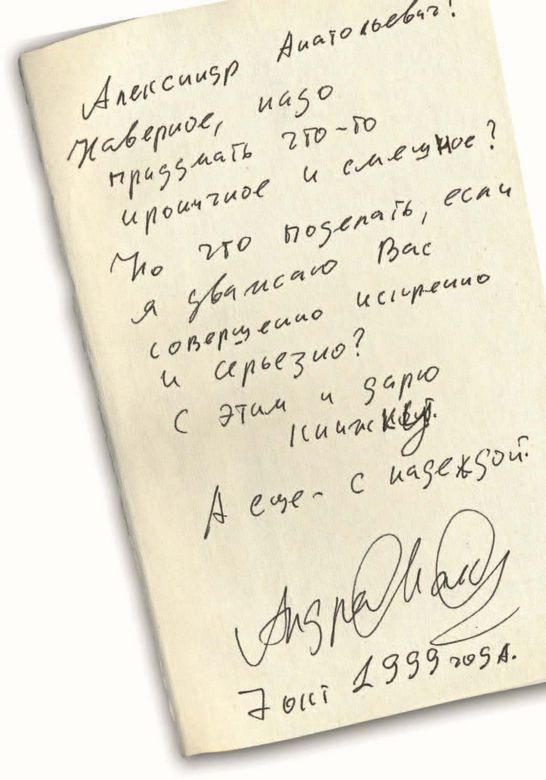 Александр Анатольевич!
Наверное, надо
придумать что-то
ироничное и смешное?
Но что поделать, если
я уважаю Вас
совершенно искренно
и серьезно?
С этим и дарю
книжку.
А еще - с надеждой.
Андрей
7 окт 1999 года.